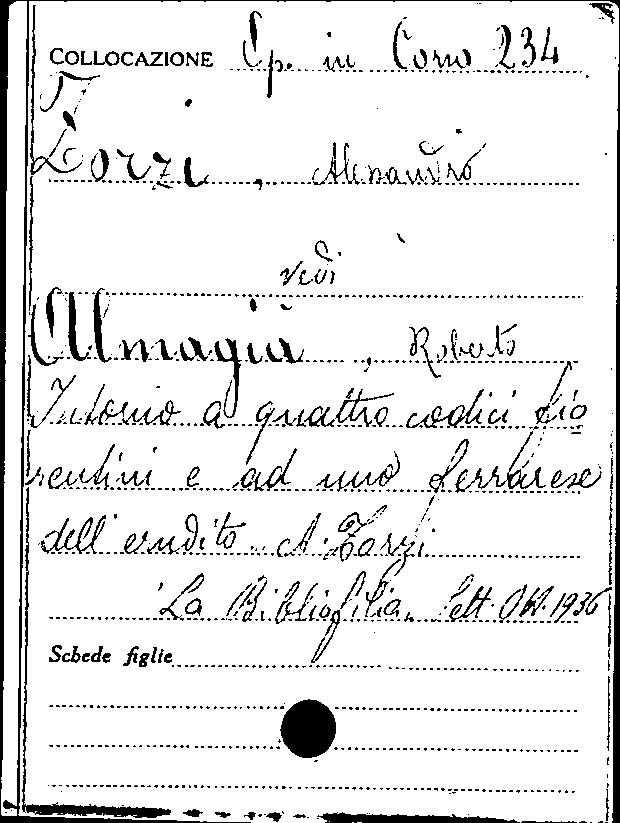 COLLOCAZIONE Ep. in Corso 234
Zorzi, Alessandro
vedi
Almagià, Roberto
Intorno a quattro codici fio
rentini e ad uno ferrarese
dell'erudito A. Zorzi
La Bibliofilia. Sett. Ott. 1936
Schede figlie